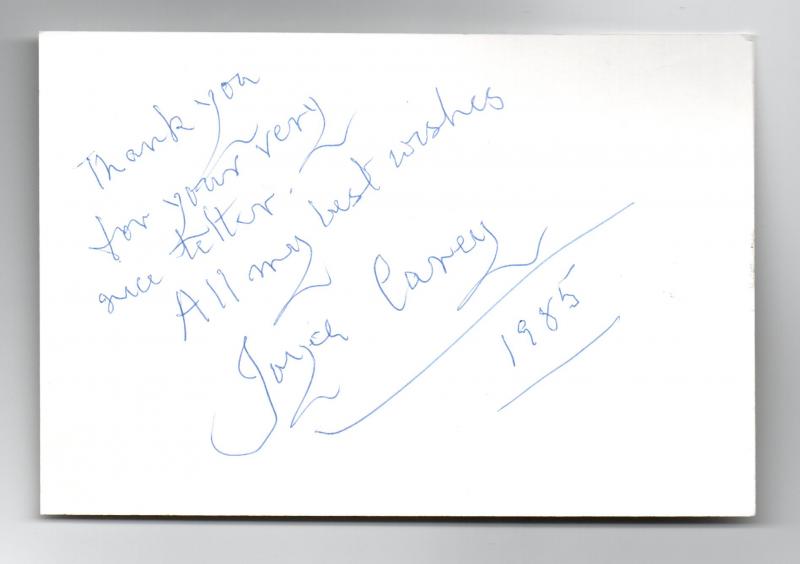 Thank you
for your very
nice letter.
All my best wishes
Joyce Carey
1985